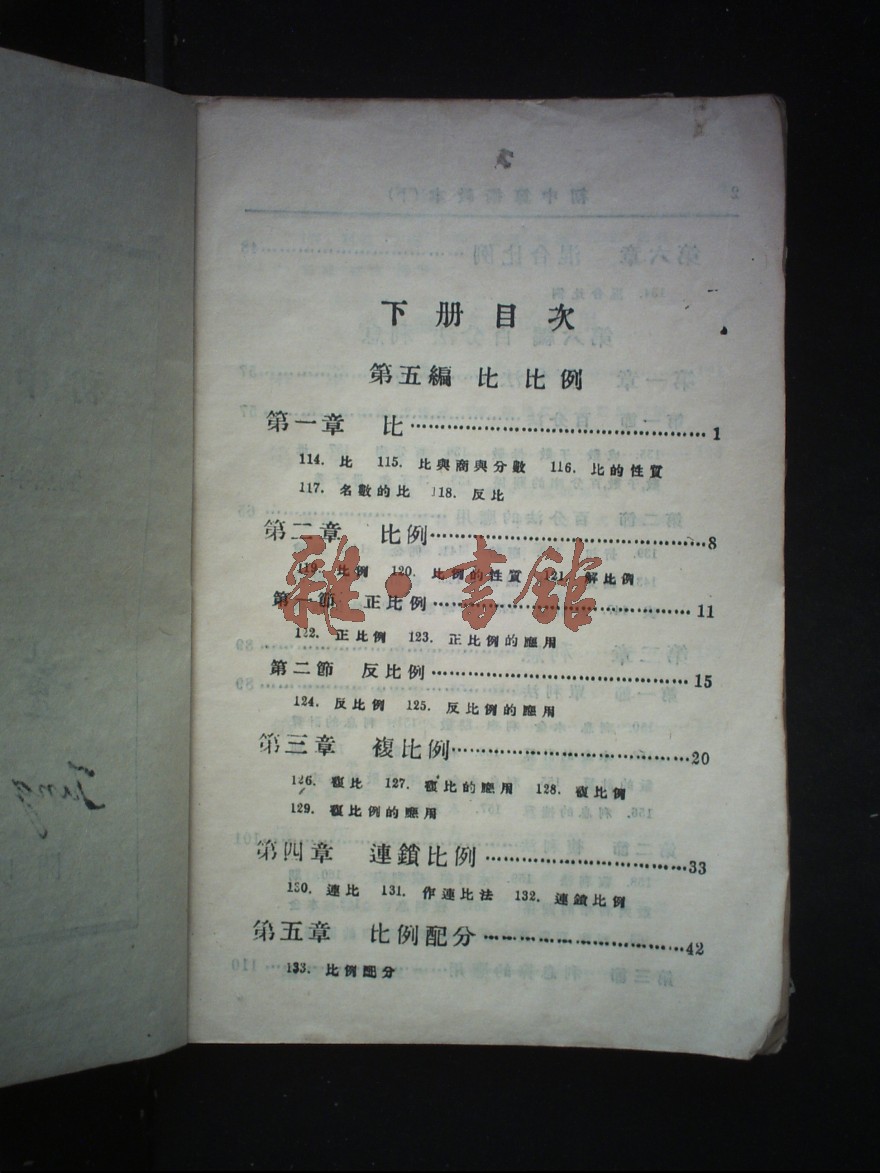 下册目次
第五編 比 比例
第一章 比……………………………………1
114. 比 115. 比與商與分數 116. 比的性質
117. 名數的比 118. 反比
第二章 比例……………………………………8
119. 比例 120. 比例的性質 121. 解比例
第一節 正比例……………………………………11
122. 正比例 123. 正比例的應用
第二節 反比例……………………………………15
124. 反比例 125. 反比例的應用
第三章 複比例……………………………………20
126. 複比 127. 複比的應用 128. 複比例
129. 複比例的應用
第四章 連鎖比例……………………………………33
130. 連比 131. 作連比法 132. 連鎖比例
第五章 比例配分……………………………………42
133. 比例配分
雜·書館